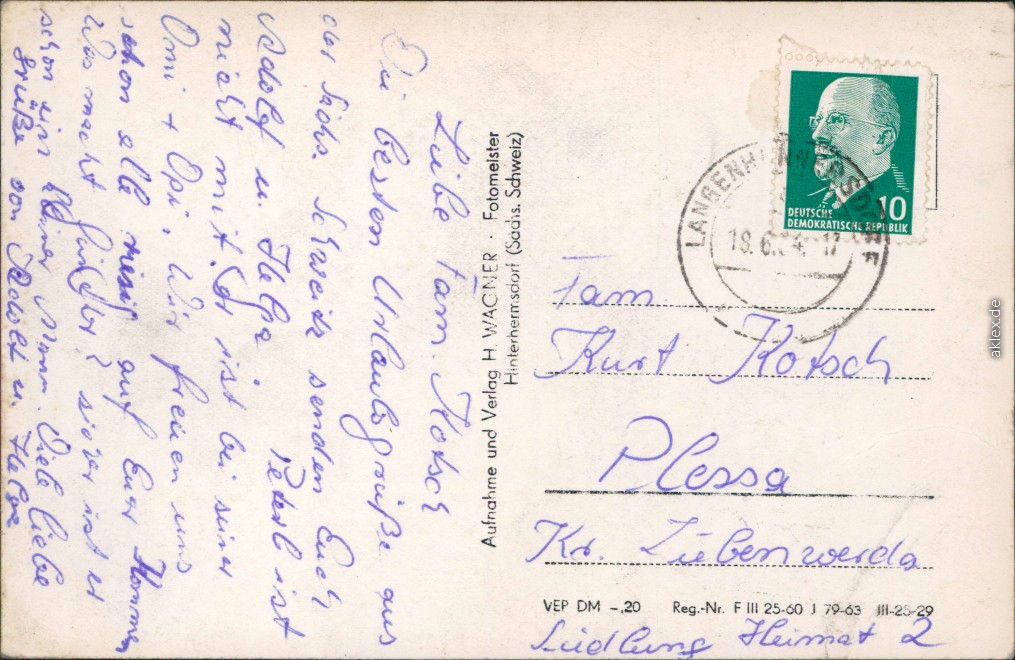 Liebe Fam. Kotsch
Die besten Urlaubsgrüße aus
der Sächs. Schweiz senden Euch
Adolf u. Helga Peterl ist
nicht mit. Er ist bei seiner
Omi + Opi. Wir freien uns
schon alle auf Euer Kommen
Was macht Günther? sicher ist er
schon ein kleiner Mann. Viele liebe
Grüße von Adolf u. Helga
Aufnahme und Verlag H. WAGNER · Fotomeister
Hinterhermsdorf (Sächs. Schweiz)
10
DEUTSCHE
DEMOKRATISCHE REPUBLIK
18.6. 4. 17
Fam.
Kurt Kotsch
Plessa
Kr. Liebenwerda
VEP DM -,20 Reg.-Nr. F III 25-60 J 79-63 III-25-29
Siedlung Heimat 2
aklex.de